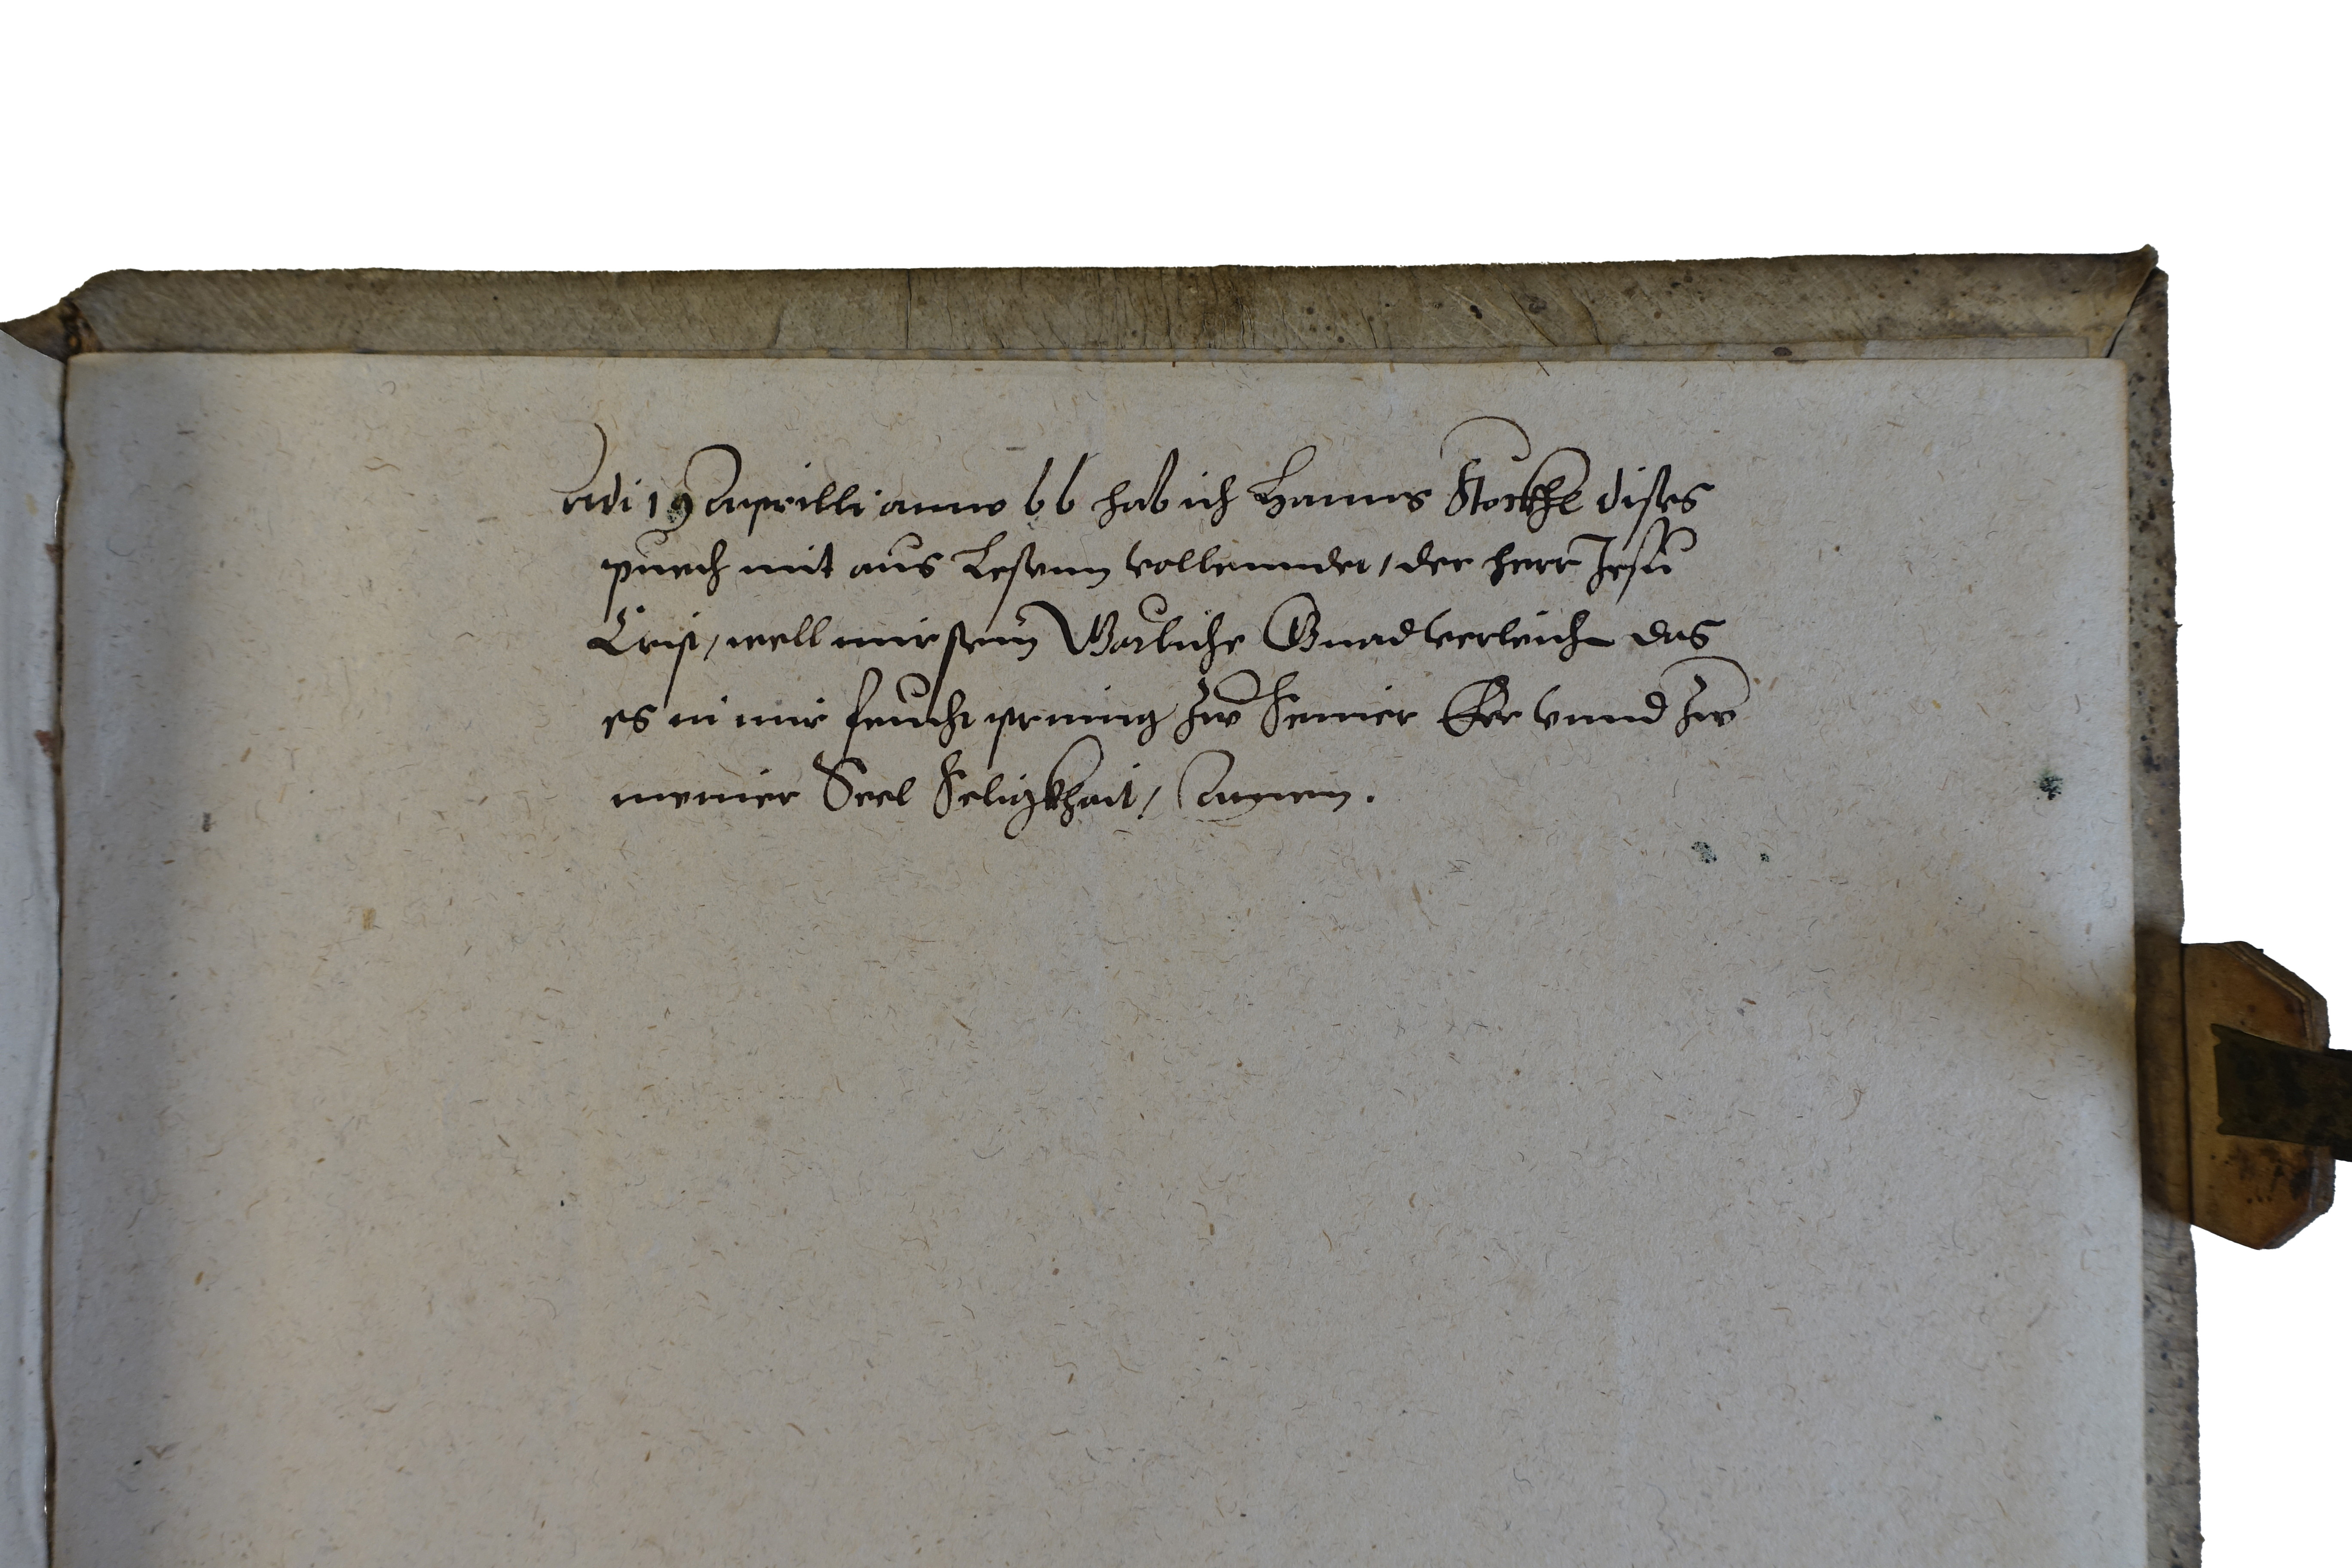 Adi 19 Apprilli anno 66 hab ich Hanns Stockhl dises
puech mit aus Lesenn vollenndet / der herr Jesu
Crist / well mir sein Warliche Gnad verleich das
es in mir frucht pring zw Seiner Eer vnnd zw
meiner Seel Seligkhait / Amen .